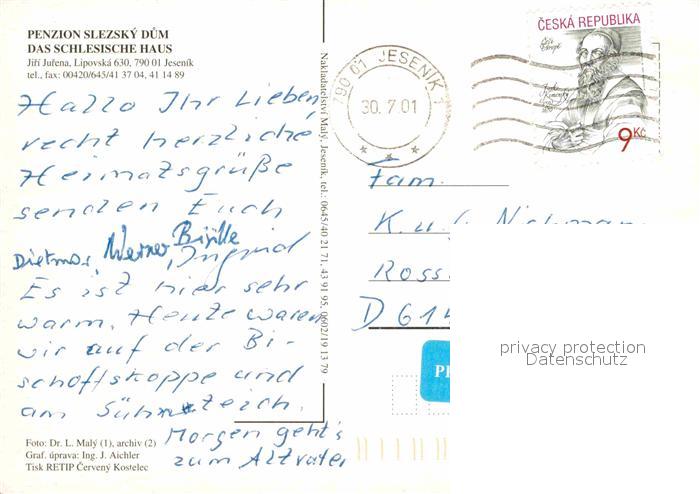 PENZION SLEZSKÝ DŮM
DAS SCHLESISCHE HAUS
Jiří Juřena, Lipovská 630, 790 01 Jeseník
tel., fax: 00420/645/41 37 04, 41 14 89
Hallo Ihr Lieben,
recht herzliche
Heimatsgrüße
senden Euch
Dietmar, Werner, Ingrid
Es ist hier sehr
warm. Heute waren
wir auf der Bi-
schoffskoppe und
am Sühneteich.
Morgen geht's
zum Altvater
Foto: Dr. L. Malý (1), archiv (2)
Graf. úprava: Ing. J. Aichler
Tisk RETIP Červený Kostelec
Nakladatelství Malý, Jeseník, tel.: 0645/40 21 71, 43 91 95, 0602/19 13 79
790 01 JESENÍK 1
30.7.01
ČESKÁ REPUBLIKA
9 Kč
Fam.
K. u.
Ross
D 614
privacy protection
Datenschutz